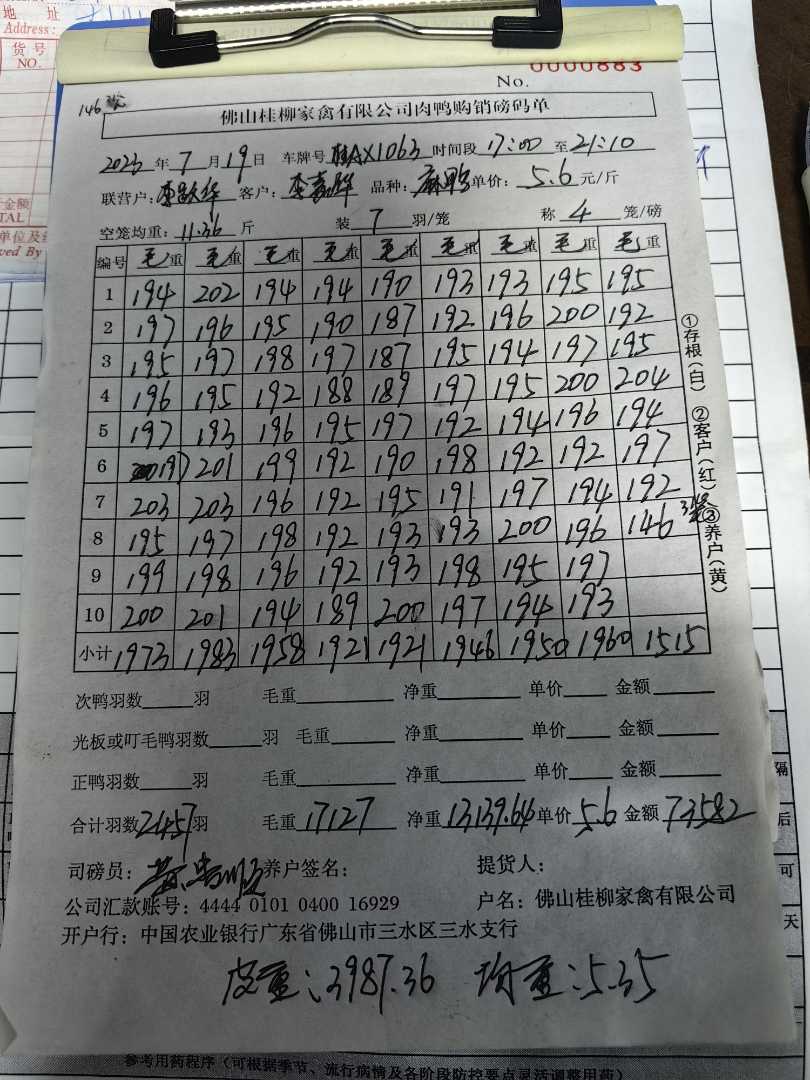 地 址
Address:
货 号
NO.
No. 0000883
146
佛山桂柳家禽有限公司肉鸭购销磅码单
2023 年 7 月 19 日 车牌号 桂AX1063 时间段 17:00 至 21:10
联营户: 客户: 品种: 麻鸭 单价: 5.6 元/斤
空笼均重: 11.36 斤 装 7 羽/笼 称 4 笼/磅
编号 毛重 毛重 毛重 毛重 毛重 毛重 毛重 毛重 毛重
1 194 202 194 194 190 193 193 195 195
2 197 196 195 190 187 192 196 200 192
3 195 197 198 197 187 195 194 197 195
4 196 195 192 188 189 197 195 200 204
5 197 193 196 195 197 192 194 196 194
6 197 201 199 192 190 198 192 192 197
7 203 203 196 192 195 191 197 194 192
8 195 197 198 192 193 193 200 196 146 3笼
9 199 198 196 192 193 198 195 197
10 200 201 194 189 200 197 194 193
小计 1973 1983 1958 1921 1921 1946 1950 1960 1515
①存根(白) ②客户(红) ③养户(黄)
次鸭羽数 羽 毛重 净重 单价 金额
光板或叮毛鸭羽数 羽 毛重 净重 单价 金额
正鸭羽数 羽 毛重 净重 单价 金额
合计羽数 2457 羽 毛重 17127 净重 13139.64 单价 5.6 金额 73582
司磅员: 养户签名: 提货人:
公司汇款账号: 4444 0101 0400 16929 户名: 佛山桂柳家禽有限公司
开户行: 中国农业银行广东省佛山市三水区三水支行
皮重:3987.36 均重:5.35
参考用药程序(可根据季节、流行病情及各阶段防控要点灵活调整用药)